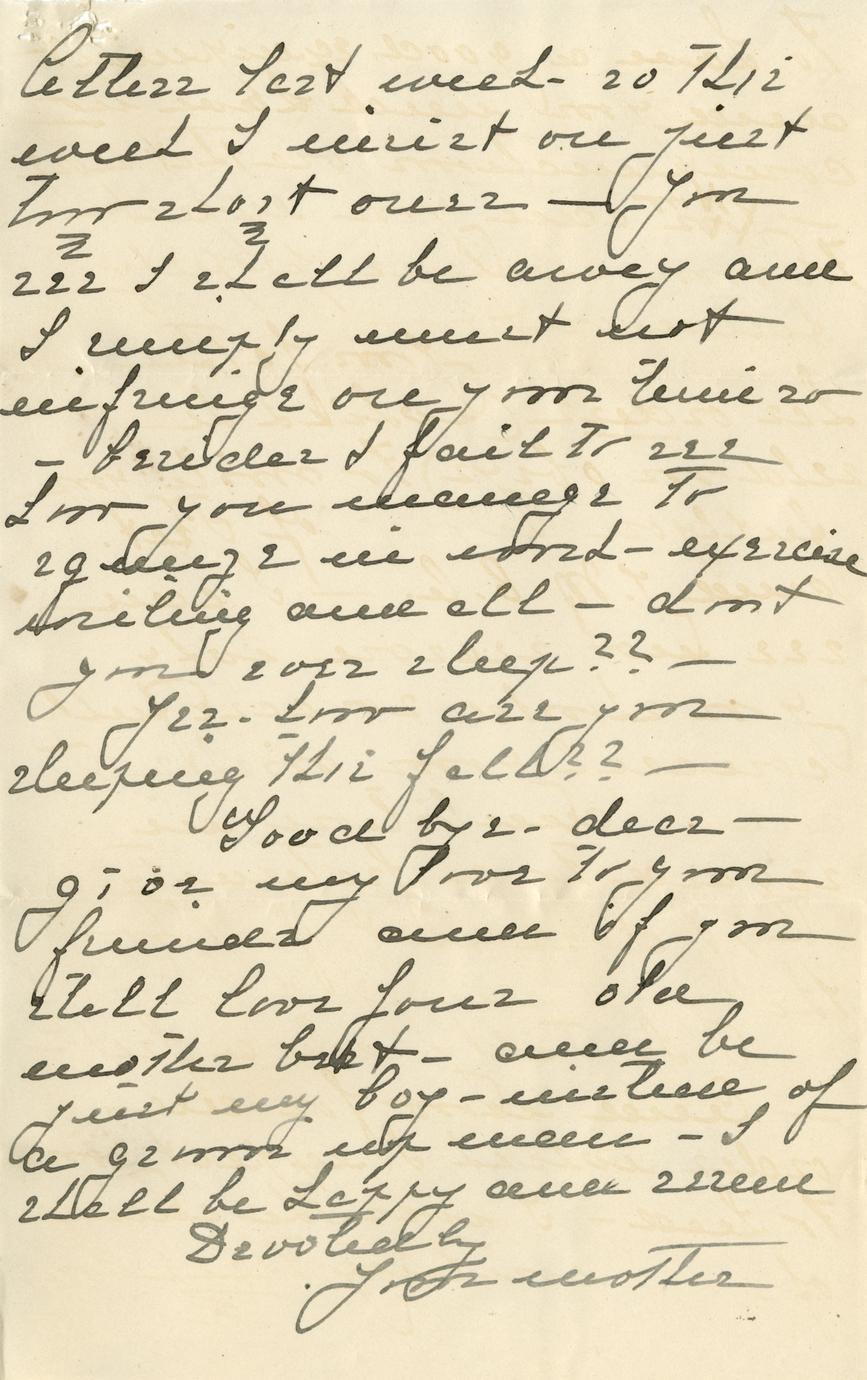 letters last week - so this
week I insist on just
two short ones — You
see I shall be away and
I simply must not
infringe on your time so
- besides I fail to see
how you manage to
squeeze in work - exercise
writing and all - don't
you ever sleep?? —
Yes - how are you
sleeping this fall?? —
Good bye - dear —
give my love to your
friends and if you
still love your old
mother best - and be
just my boy - instead of
a grown up man - I
shall be happy and serene
Devotedly
Your mother